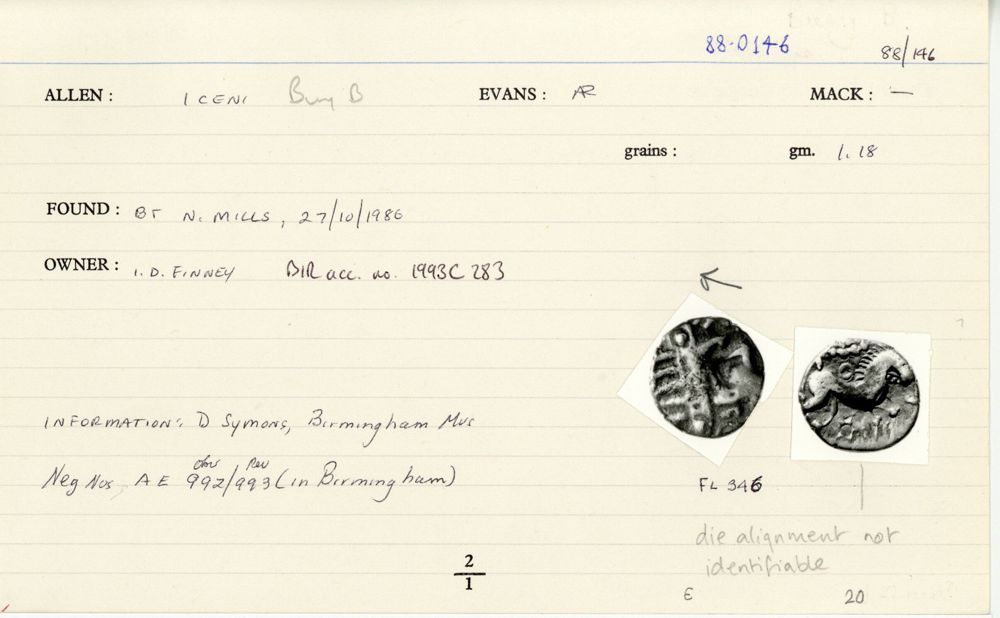 88-0146
88/146
ALLEN : ICENI Bury B EVANS : AR MACK : —
grains : gm. 1.18
FOUND : BT N. MILLS, 27/10/1986
OWNER : I.D. FINNEY BIR acc. no. 1993C 283
INFORMATION: D Symons, Birmingham Mus
obv rev
Neg Nos AE 992/993 (in Birmingham)
FL 346
die alignment not
identifiable
2
1
E 20